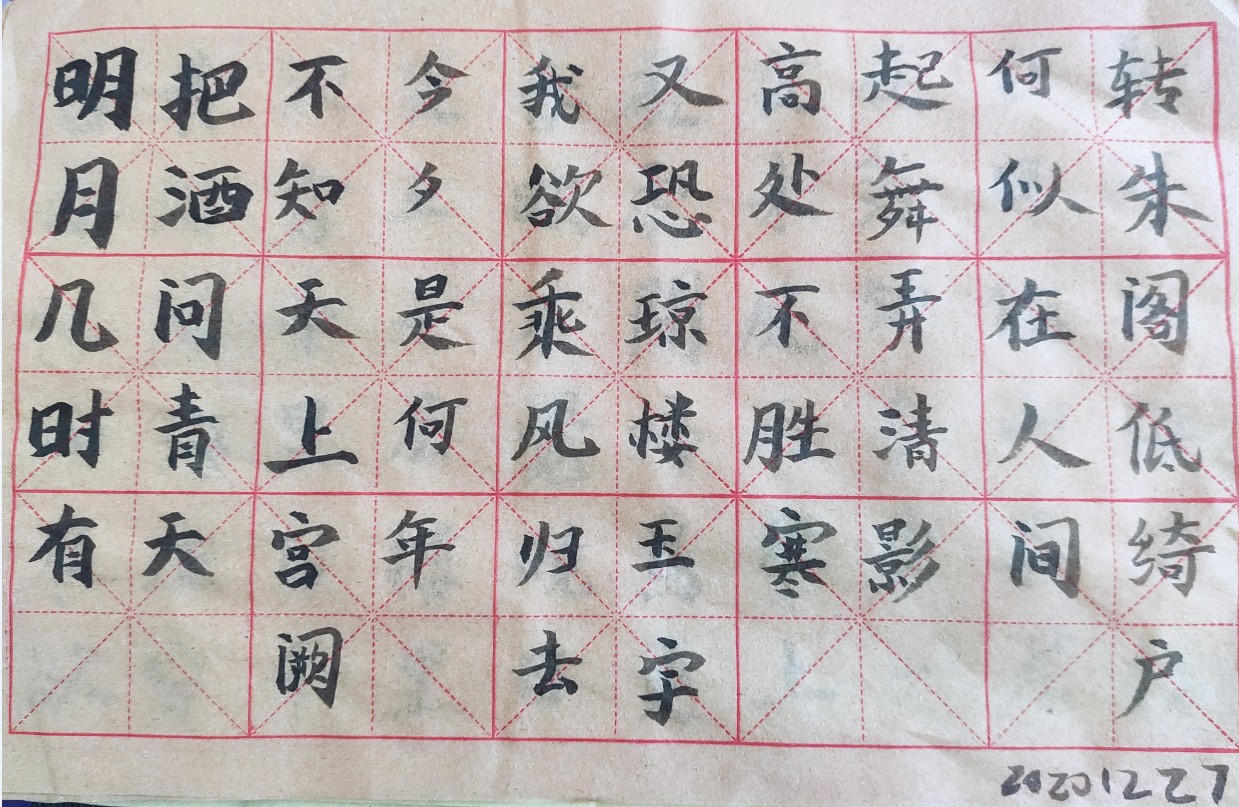 明月几时有
把酒问青天
不知天上宫阙
今夕是何年
我欲乘风归去
又恐琼楼玉宇
高处不胜寒
起舞弄清影
何似在人间
转朱阁低绮户
20201227